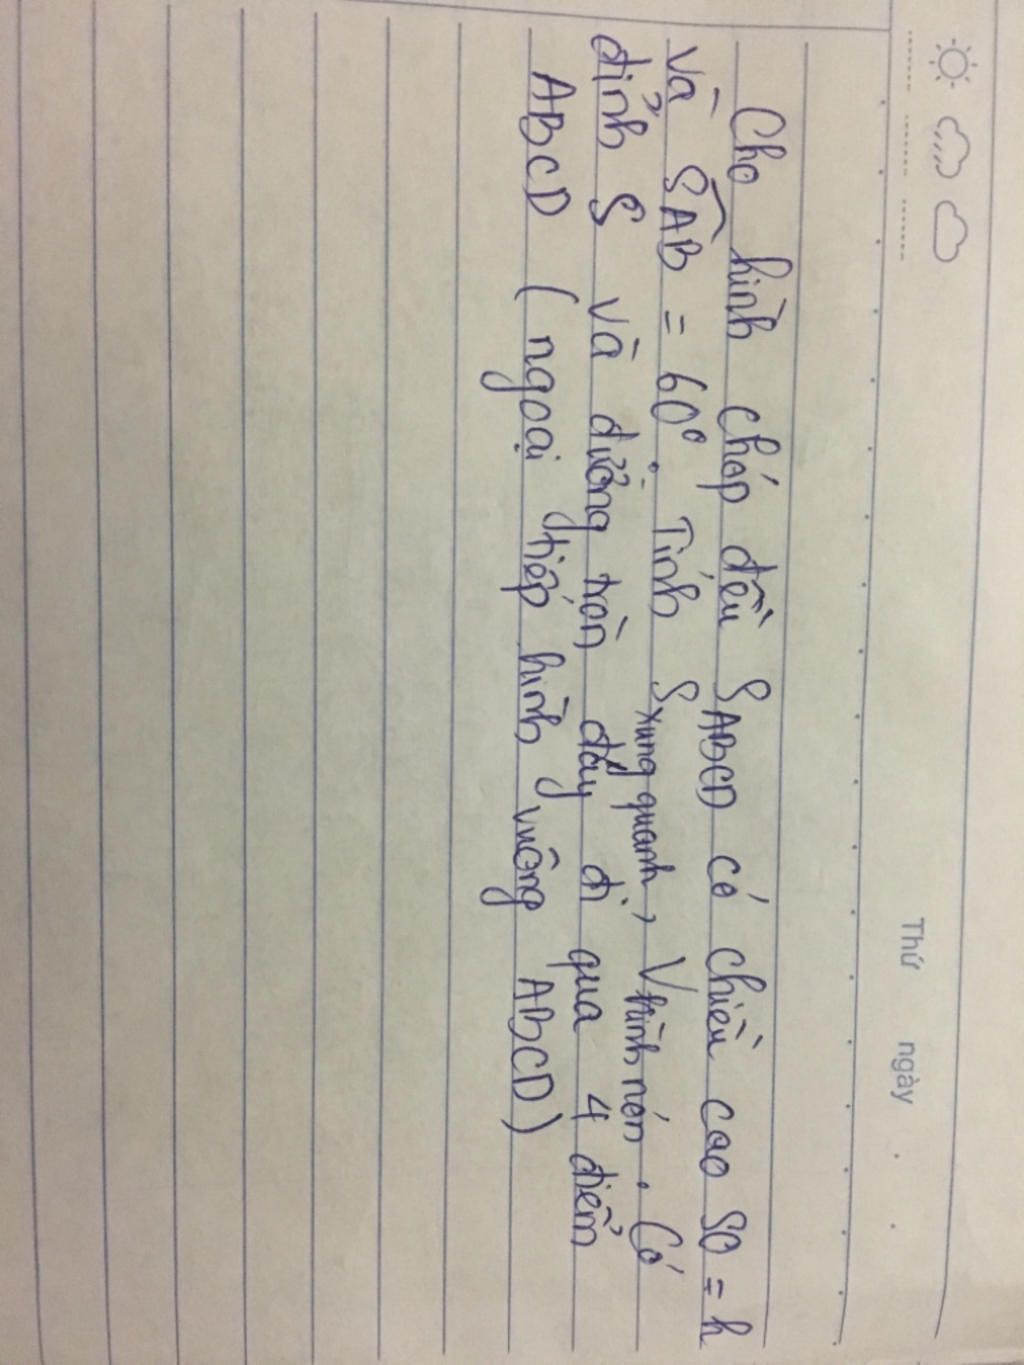 Thứ
ngày
Cho hình chóp đều SABCD có chiều cao SO = h
và SAB = 60°. Tính Sxung quanh, Vhình nón. Có
đỉnh S và đường tròn đáy đi qua 4 điểm
ABCD (ngoại tiếp hình vuông ABCD)